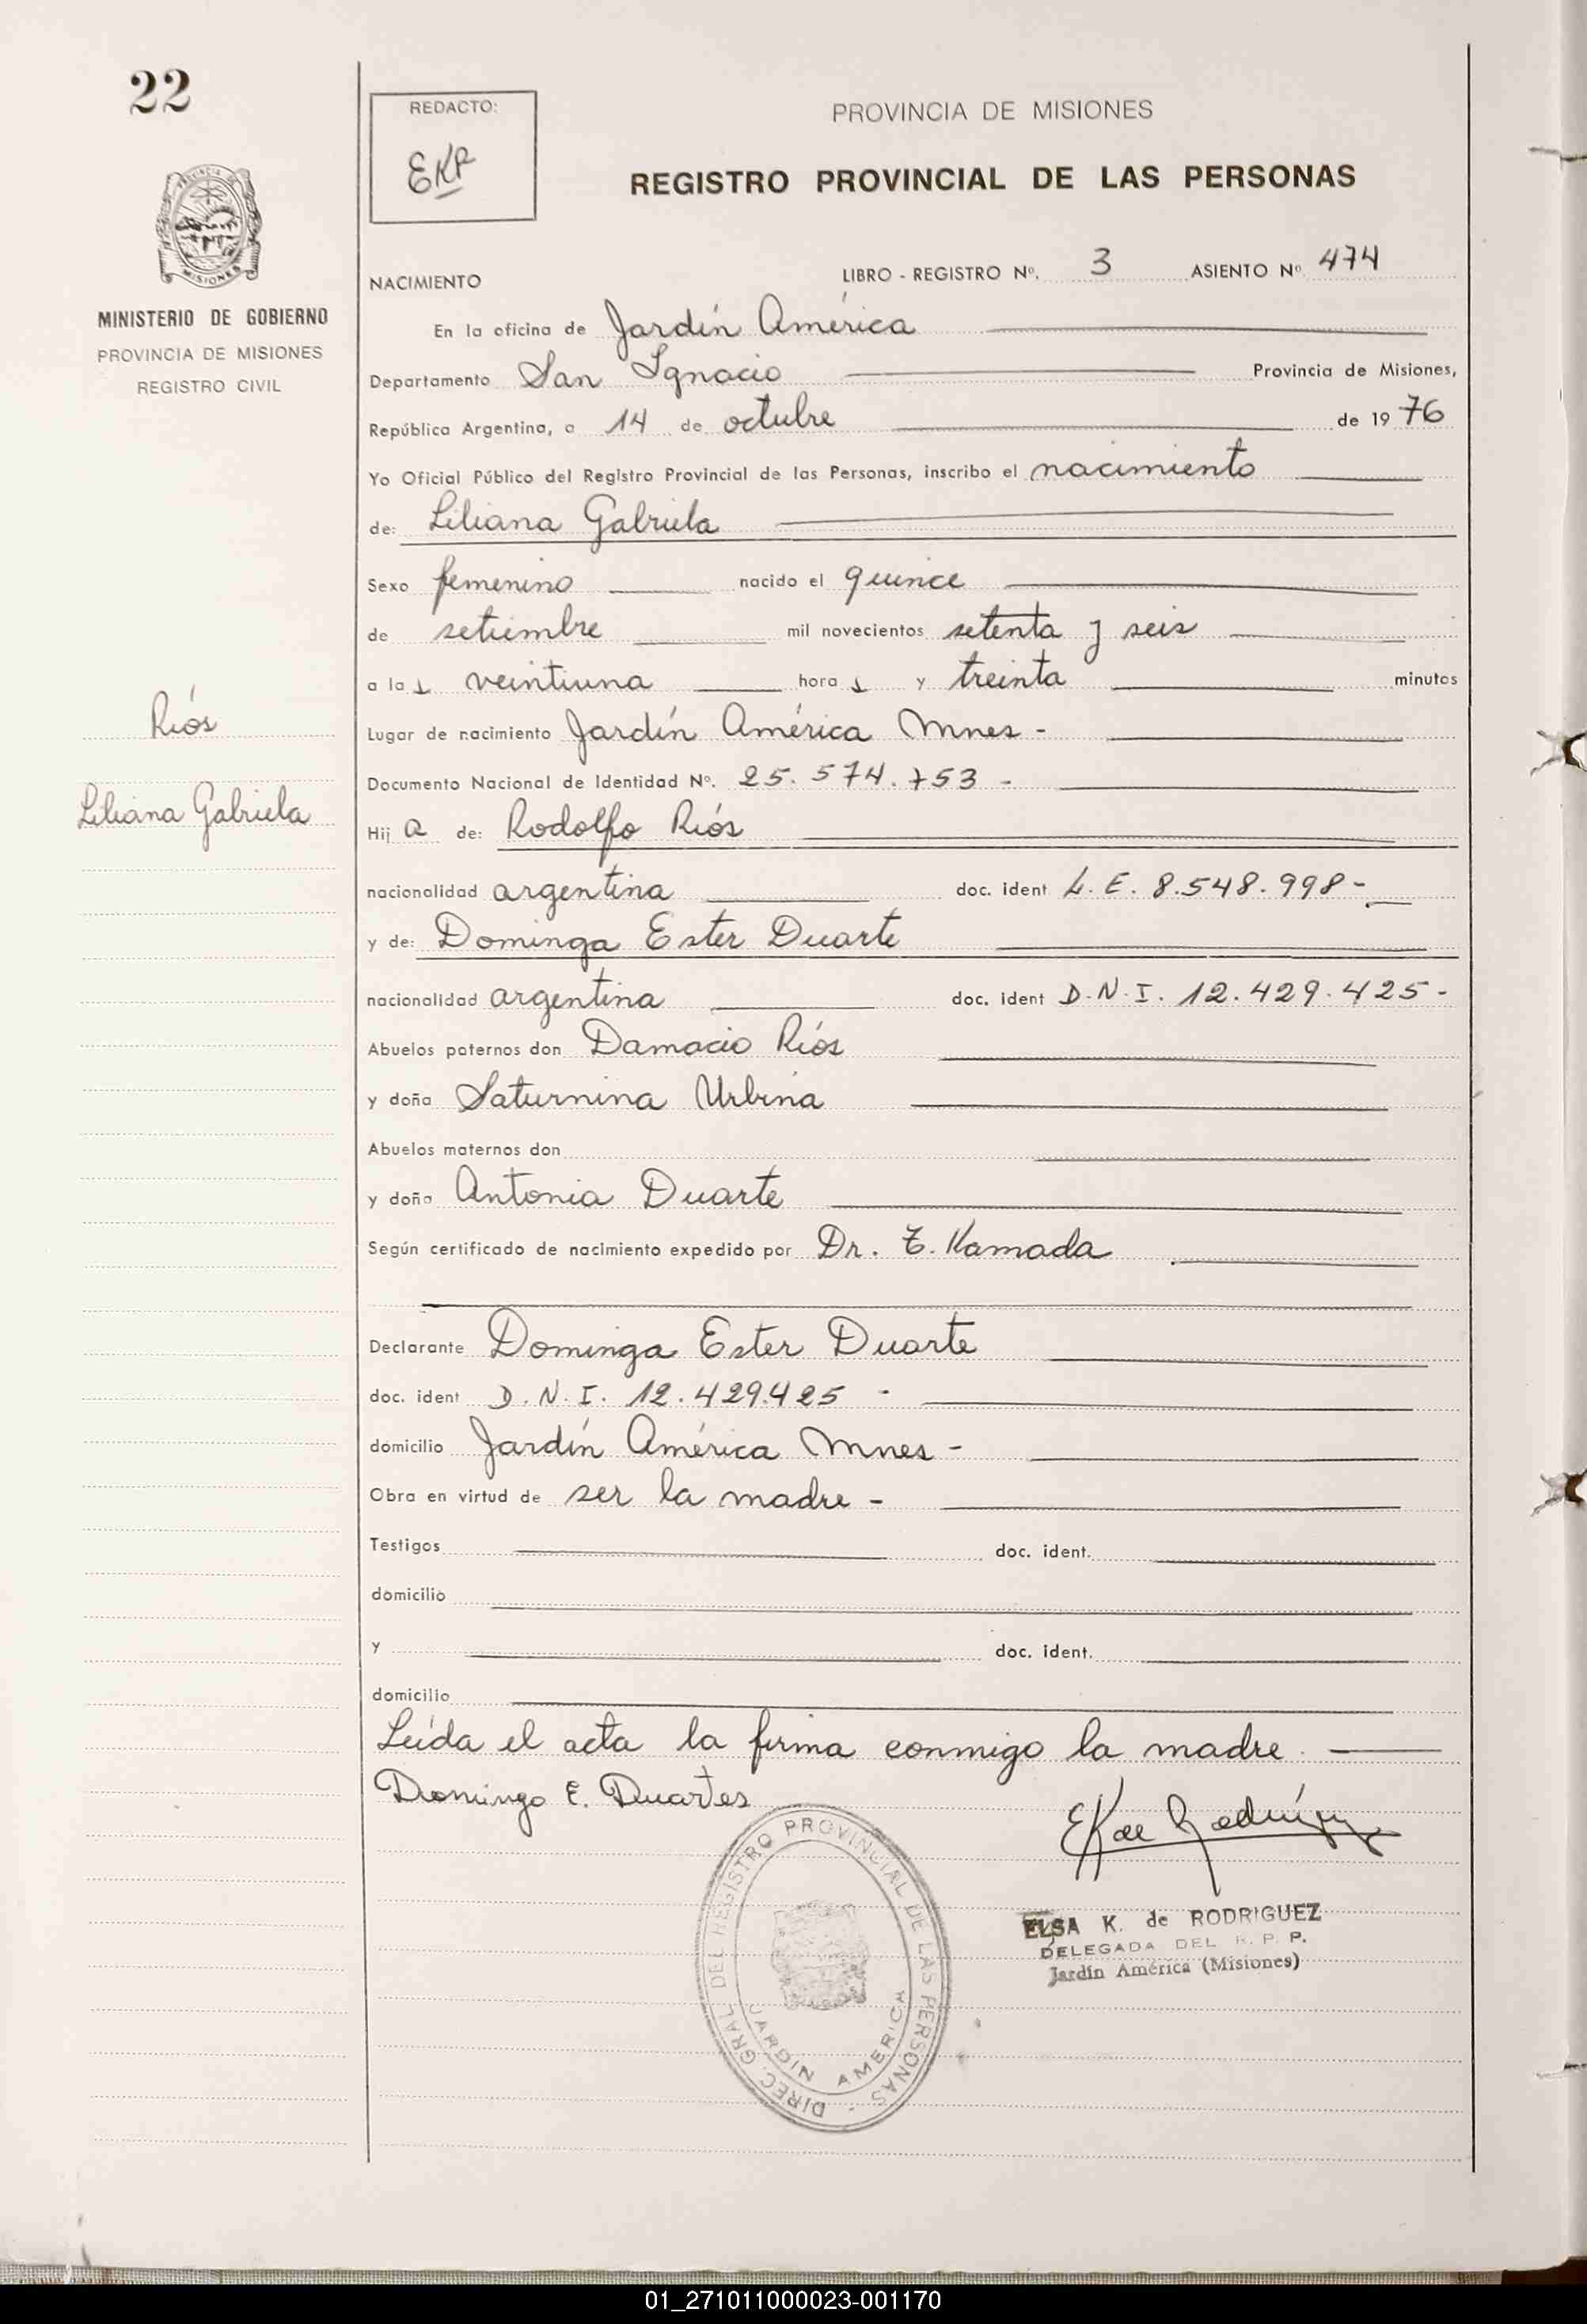 22
REDACTO:
EKR
PROVINCIA DE MISIONES
REGISTRO PROVINCIAL DE LAS PERSONAS
MISIONES
MINISTERIO DE GOBIERNO
PROVINCIA DE MISIONES
REGISTRO CIVIL
Ríos
Liliana Gabriela
NACIMIENTO LIBRO - REGISTRO Nº. 3 ASIENTO Nº 474
En la oficina de Jardín América
Departamento San Ignacio Provincia de Misiones,
República Argentina, a 14 de octubre de 1976
Yo Oficial Público del Registro Provincial de las Personas, inscribo el nacimiento
de: Liliana Gabriela
Sexo femenino nacido el quince
de setiembre mil novecientos setenta y seis
a las veintiuna horas y treinta minutos
Lugar de nacimiento Jardín América Mnes -
Documento Nacional de Identidad Nº. 25.574.753 -
Hija de: Rodolfo Ríos
nacionalidad argentina doc. ident L.E. 8.548.998-
y de: Dominga Ester Duarte
nacionalidad argentina doc. ident D.N.I. 12.429.425-
Abuelos paternos don Damacio Ríos
y doña Saturnina Urbina
Abuelos maternos don
y doña Antonia Duarte
Según certificado de nacimiento expedido por Dr. T. Kamada
Declarante Dominga Ester Duarte
doc. ident D.N.I. 12.429.425 -
domicilio Jardín América Mnes -
Obra en virtud de ser la madre -
Testigos doc. ident.
domicilio
y doc. ident.
domicilio
Leída el acta la firma conmigo la madre.
Domingo E. Duartes
EK de Rodríguez
DIREC. GRAL DEL REGISTRO PROVINCIAL DE LAS PERSONAS -
JARDIN AMERICA
ELSA K. de RODRIGUEZ
DELEGADA DEL R. P. P.
Jardín América (Misiones)
01_271011000023-001170